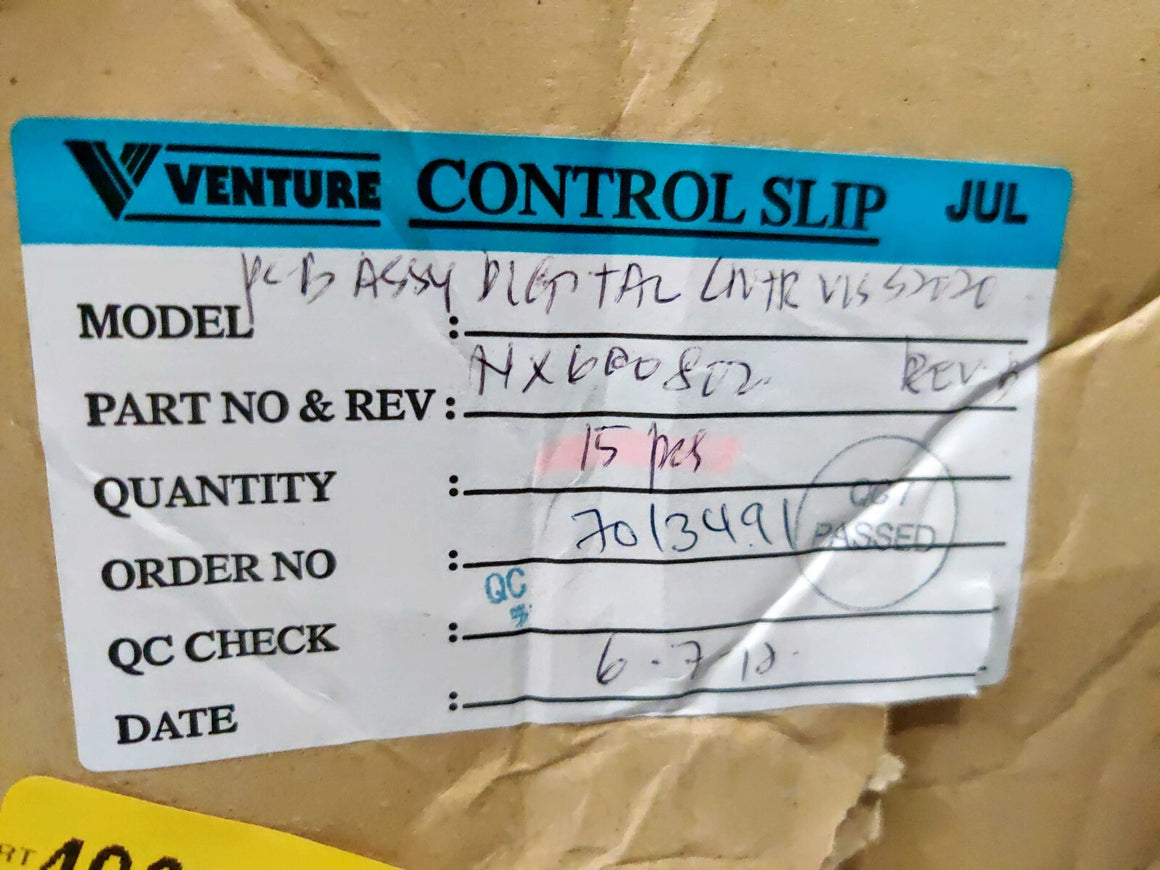 VENTURE CONTROL SLIP JUL
PCB ASSY DIGITAL CNTR VIS S2020
MODEL :
PART NO & REV : REV.
QUANTITY : 15 pcs
ORDER NO : 7013491
PASSED
QC CHECK : QC
DATE : 6.7.12.
RT